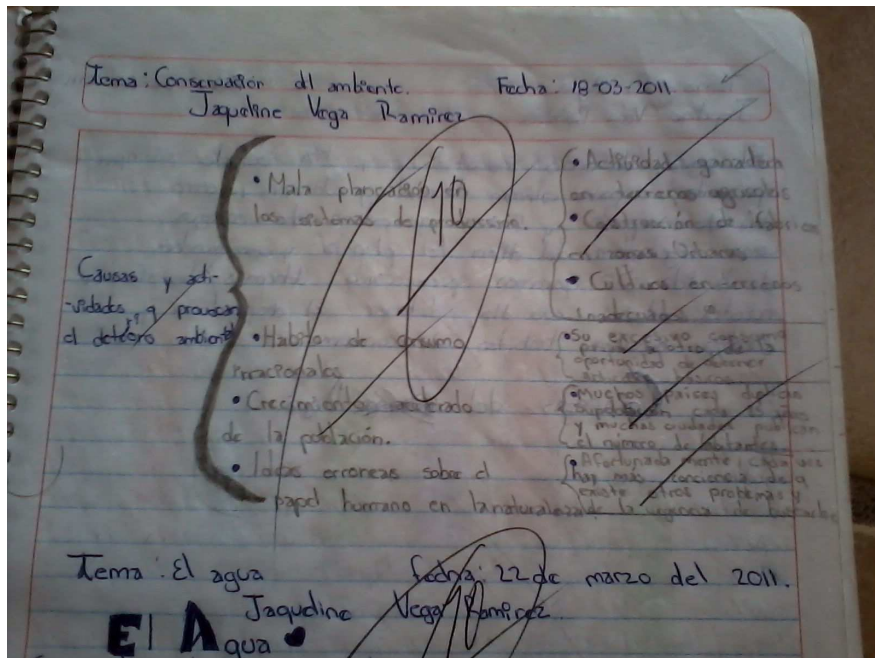 Tema: Conservación dl ambiente. Fecha: 18-03-2011
Jaqueline Vega Ramirez
10
Causas y acti-
-vidades, q provocan
el deterioro ambiental
• Mala planeación en
los sistemas de producción.
• Habitos de consumo
irracionales
• Crecimiento acelerado
de la población.
• Ideas erroneas sobre el
papel humano en la naturaleza
• Actividad ganadera
en terrenos agricolas
• Construcción de fabricas
Urbanas
• Cultivos en
inadecuados
• Su excesivo consumo
priva a otros de la
oportunidad de obtener
• Muchos paises duplican
población cada años
y muchas ciudades
el número de habitantes
• Afortunadamente, cada vez
hay más conciencia de q
existe otros problemas y
de la urgencia de
Tema: El agua fecha: 22 de marzo del 2011.
Jaqueline Vega Ramirez
10
El Agua